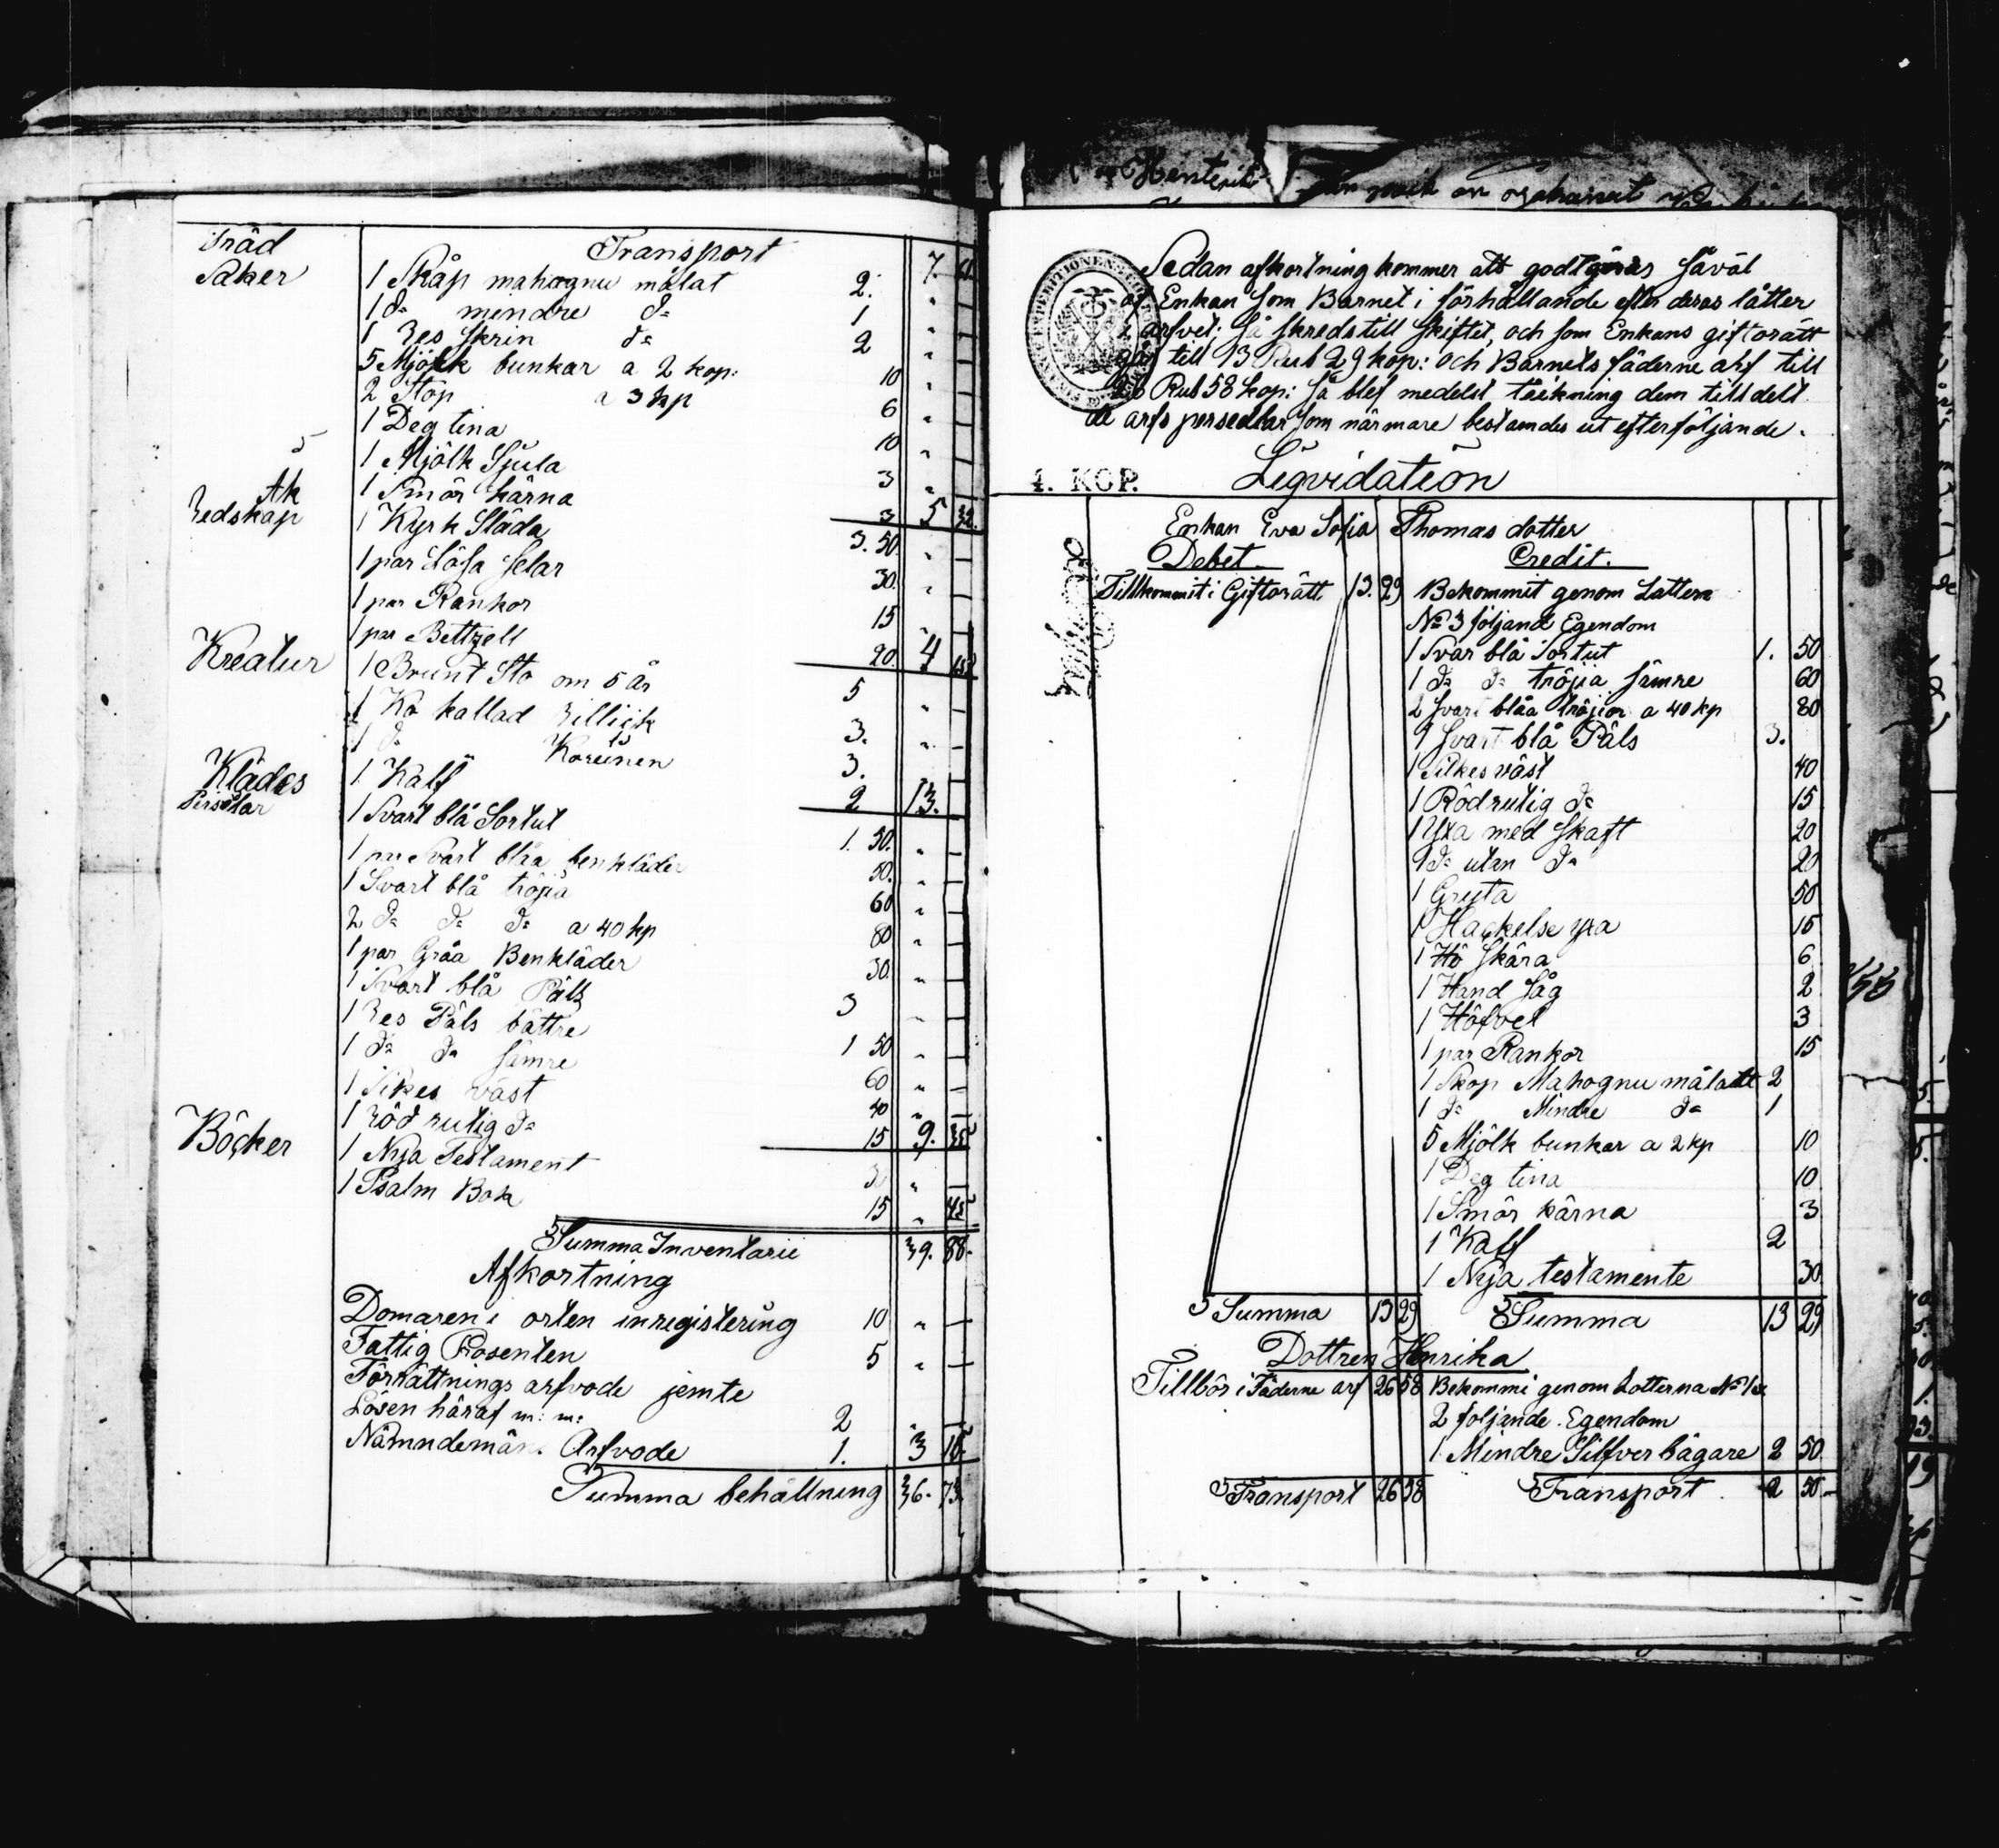 Träd Transport 7.
Saker 1 Skåp mahognu målat 2. "
1 do mindre do 1 "
1 Res skrin do 2 "
5 Mjölk bunkar a 2 kop: 10 "
2 Stop a 3 kp 6 "
1 Deg tina 10 "
1 Mjölk Sjula 3 "
1 Smör kärna 3 5 32.
Åk
Redskap 1 Kyrk Släda 3. 50. "
1 par Lösa selar 30. "
1 par Rankor 15 "
1 par Bettzell 20 4 15
Kreatur 1 Brunt Sto om 5 år 5 "
1 Ko kallad 3. "
1 do 3.
1 Kalf 2 13.
Klädes
Persedlar 1 Svart blå Sortut 1. 50. "
1 par Svart blåa benkläder 50. "
1 Svart blå tröjia 60 "
2 do do do a 40 kp 80 "
1 par Gråa Benkläder 30. "
1 Svart blå Päls 3
1 Res Päls bättre 1 50 "
1 do do sämre 60 "
1 Silkes väst 40 "
1 Röd rutig do 15 9. 35
Böcker 1 Nya Testament 3 "
1 Psalm Bok 15 " 45
Summa Inventarie 39. 88.
Afkortning
Domaren i orten inregistering 10 "
Fattig Prosenten 5 "
Förrättnings arfvode jemte
Lösen häraf m: m: 2 "
Nämndemäns Arfvode 1. 3 15
Summa behållning 36. 73.
Sedan afkortning kommer att godtgöras såväl
af Enkan som Barnet i förhållande efter deras låtter
i arfvet; så skreds till skiftet, och som Enkans giftorätt
går till 13 Rub 29 kop: och Barnets fäderne arf till
26 Rub 58 kop: så blef medelst täckning dem till delt
de arfs persedlar som närmare bestämdes ut efterföljande.
4. KOP.
Liqvidation
Enkan Eva Sofia Thomas dotter
Debet Credit.
Tillkommit i Giftorätt 13. 29 Bekommit genom Lattern
No 3 följand Egendom
1 Svar blå Sortut 1. 50
1 do do tröjia sämre 60
2 svart blåa tröjior a 40 kp 80
1 svart blå Päls 3.
1 Silkes väst 40
1 Röd rutig do 15
1 Yxa med skaft 20
1 do utan do 20
1 Gryta 50
1 Hackelse yxa 15
1 Hö skära 6
1 Hand såg 2
1 Höfvel 3
1 par Rankor 15
1 Skop Mahognu målatt 2
1 do Mindre do 1
5 Mjölk bunkar a 2 kp 10
1 Deg tina 10
1 Smör kärna 3
1 Kalf 2
1 Nya testamente 30
Summa 13 29 Summa 13 29
Dottren Henrika
Tillbör i Fäderne arf 26 58 Bekommi genom Lotterna No 1 o
2 foljande Egendom
1 Mindre Silfver bägare 2 50.
Transport 26 58 Transport 2 50